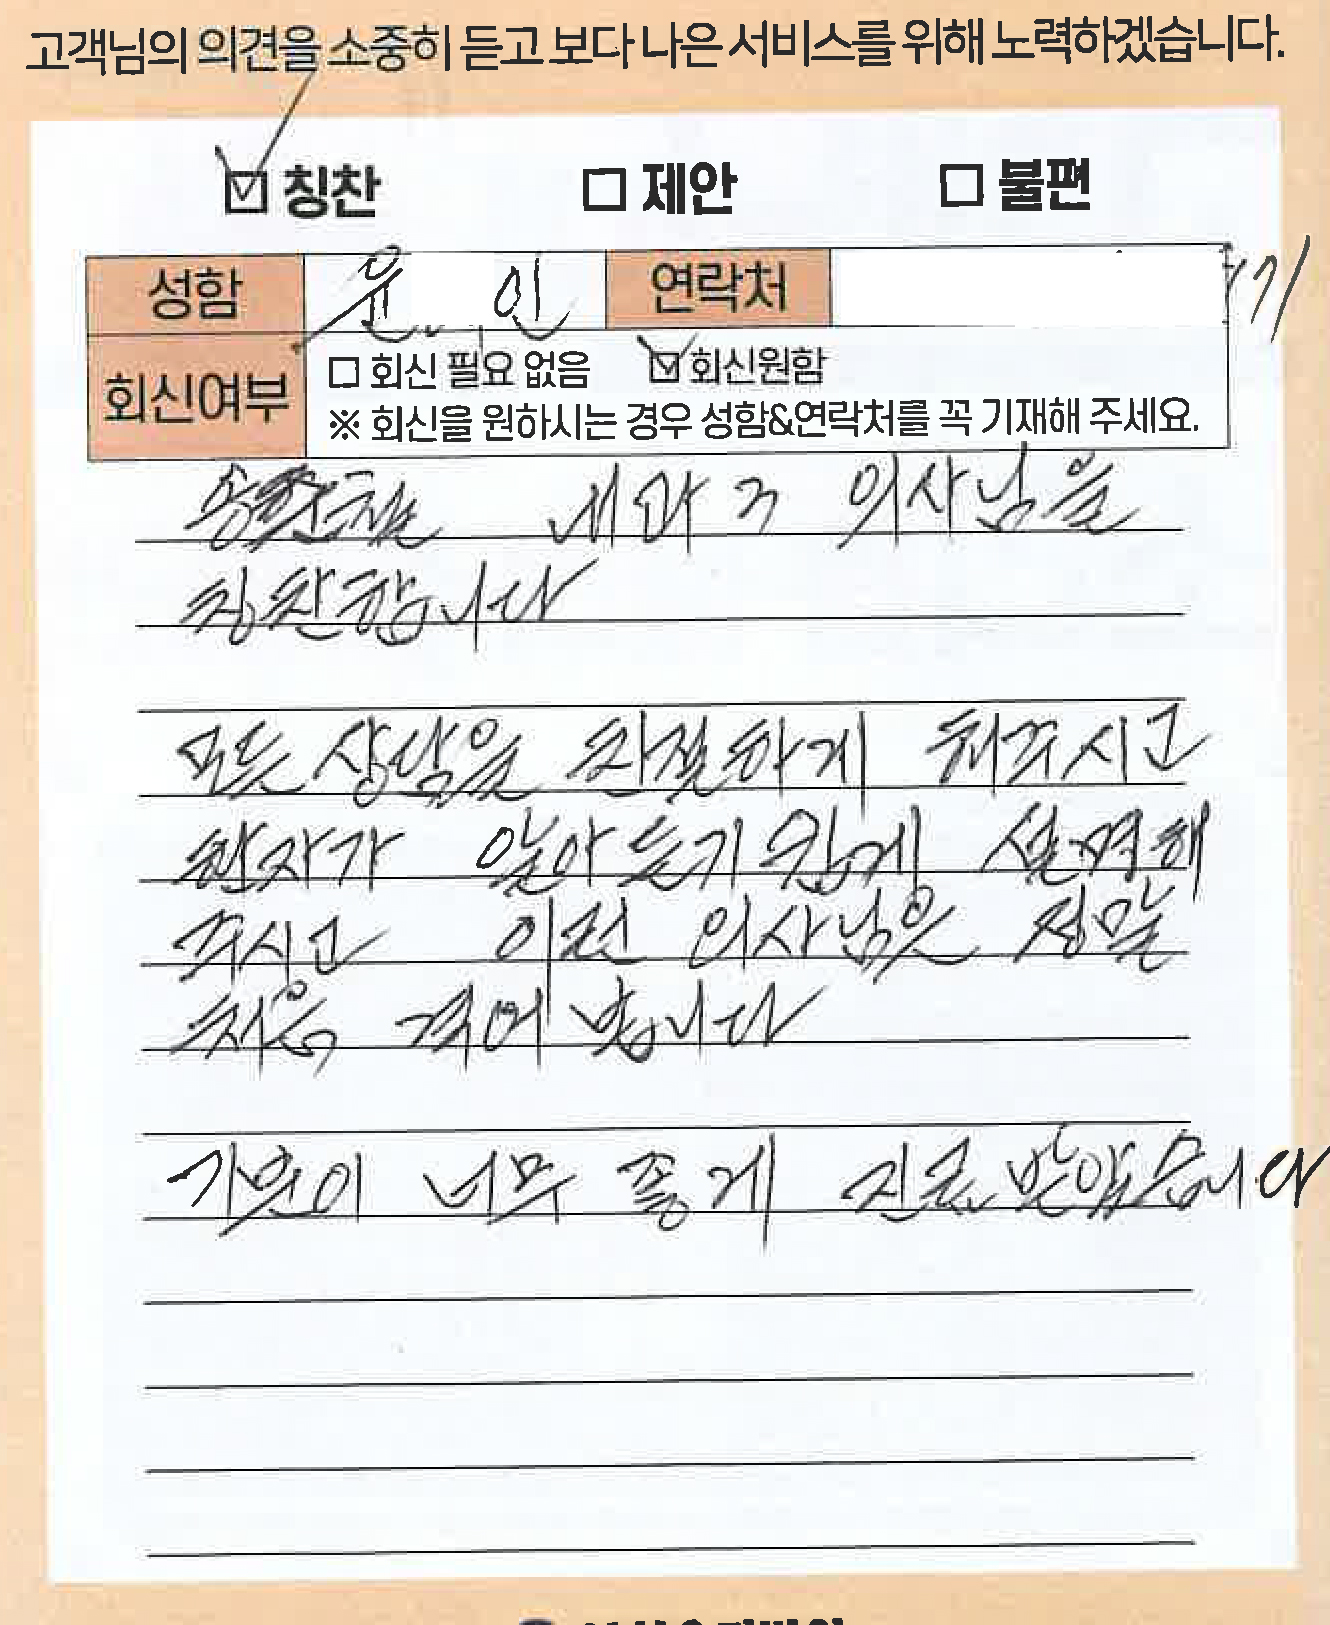 고객님의 의견을 소중히 듣고 보다 나은 서비스를 위해 노력하겠습니다.
칭찬 제안 불편
성함 윤 인 연락처
회신여부 회신 필요 없음 회신원함
※ 회신을 원하시는 경우 성함&연락처를 꼭 기재해 주세요.
내과 의사님을
칭찬합니다
모든 상담을 친절하게 해주시고
환자가 알아듣기 쉽게 설명해
주시고 이런 의사님은 정말
처음 겪어 봅니다
기분이 너무 좋게 진료 받았습니다